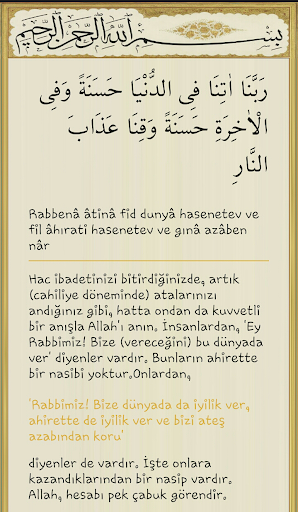 بسم الله الرحمن الرحيم
رَبَّنَا اٰتِنَا فِى الدُّنْيَا حَسَنَةً وَفِى
الْاٰخِرَةِ حَسَنَةً وَقِنَا عَذَابَ
النَّارِ
Rabbenâ âtinâ fid dunyâ hasenetev ve
fil âhıratî hasenetev ve gınâ azâben
nâr
Hac ibadetinizi bitirdiğinizde, artık
(cahiliye döneminde) atalarınızı
andığınız gibi, hatta ondan da kuvvetli
bir anışla Allah'ı anın. İnsanlardan, 'Ey
Rabbimiz! Bize (vereceğini) bu dünyada
ver' diyenler vardır. Bunların ahirette
bir nasibi yoktur.Onlardan,
'Rabbimiz! Bize dünyada da iyilik ver,
ahirette de iyilik ver ve bizi ateş
azabından koru'
diyenler de vardır. İşte onlara
kazandıklarından bir nasip vardır.
Allah, hesabı pek çabuk görendir.